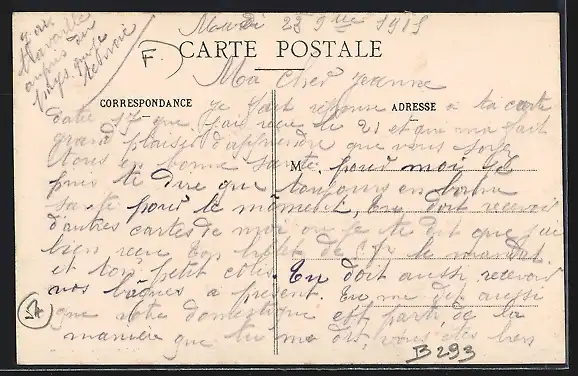 j'ai
travaillé
auprès du
Mardi 28 9bre 1915
F.
CARTE POSTALE
Ma Cher Jeanne
CORRESPONDANCE
ADRESSE
Je fait réponse a ta carte
daté 17 que j'ai reçu le 21 et qui ma fait
grand plaisir d'apprendre que vous soye
tous en bonne santé. pour moi je
M
puis te dire que toujours en bonne
santé pour le mément, Tu doit recevoir
d'autres cartes de moi ou je te dit que j'ai
bien recu ton billet de le mandat
et ton petit colis. Tu doit aussi recevoir
vos bâgues a présent. Tu me dis aussi
que votre domestique est parti de la
manière que tu me dit, vous etes bien
17
B293